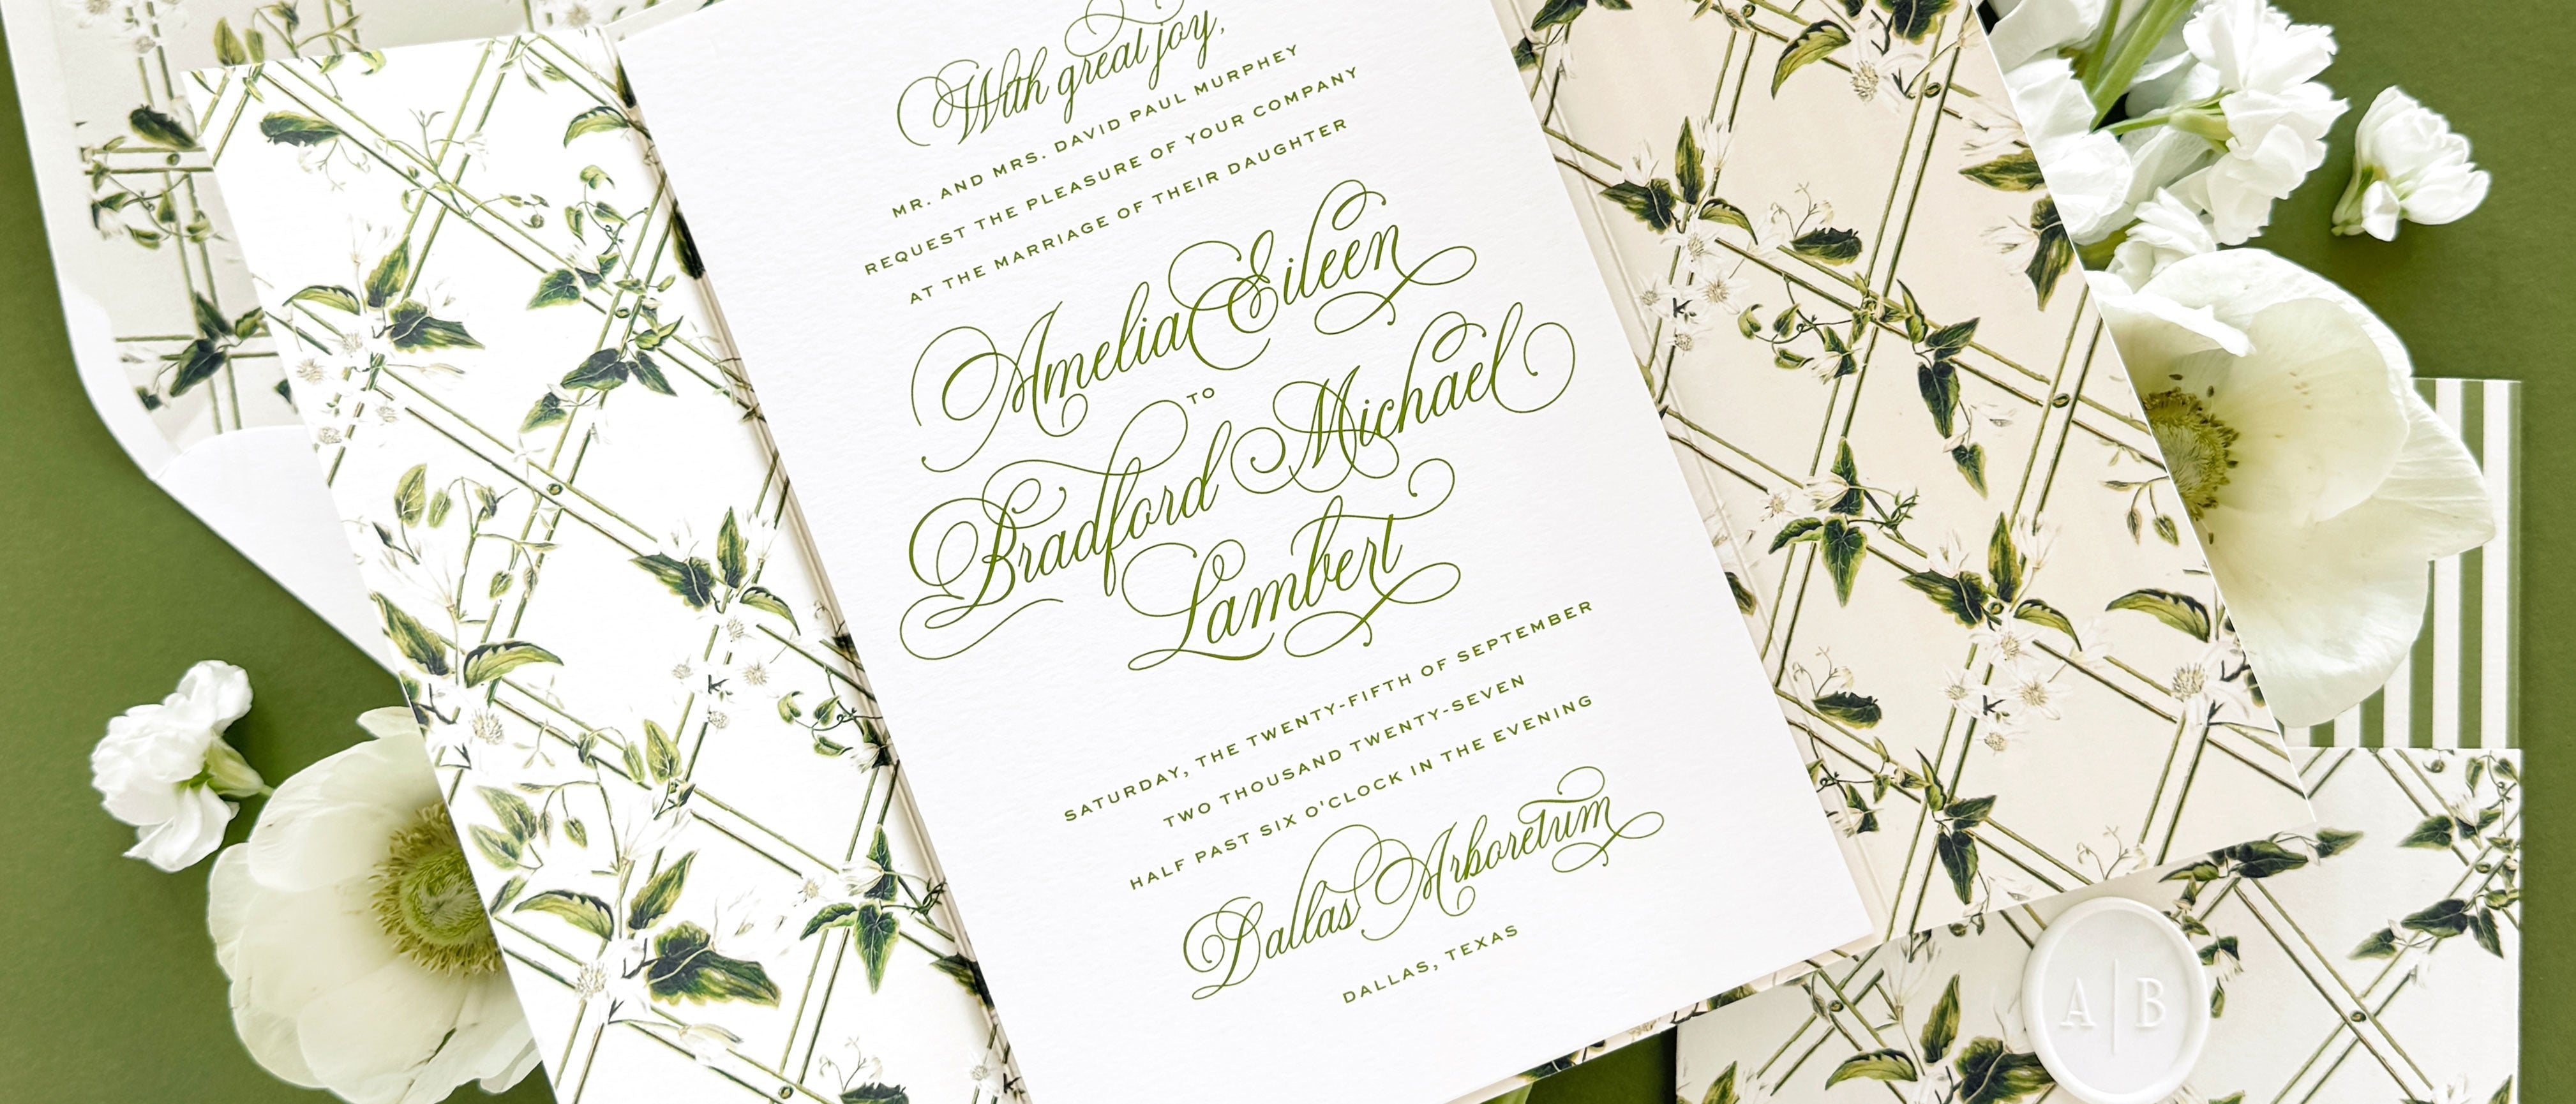 With great joy,
MR. AND MRS. DAVID PAUL MURPHEY
REQUEST THE PLEASURE OF YOUR COMPANY
AT THE MARRIAGE OF THEIR DAUGHTER
Amelia Eileen
TO
Bradford Michael
Lambert
SATURDAY, THE TWENTY-FIFTH OF SEPTEMBER
TWO THOUSAND TWENTY-SEVEN
HALF PAST SIX O'CLOCK IN THE EVENING
Dallas Arboretum
DALLAS, TEXAS
A|B